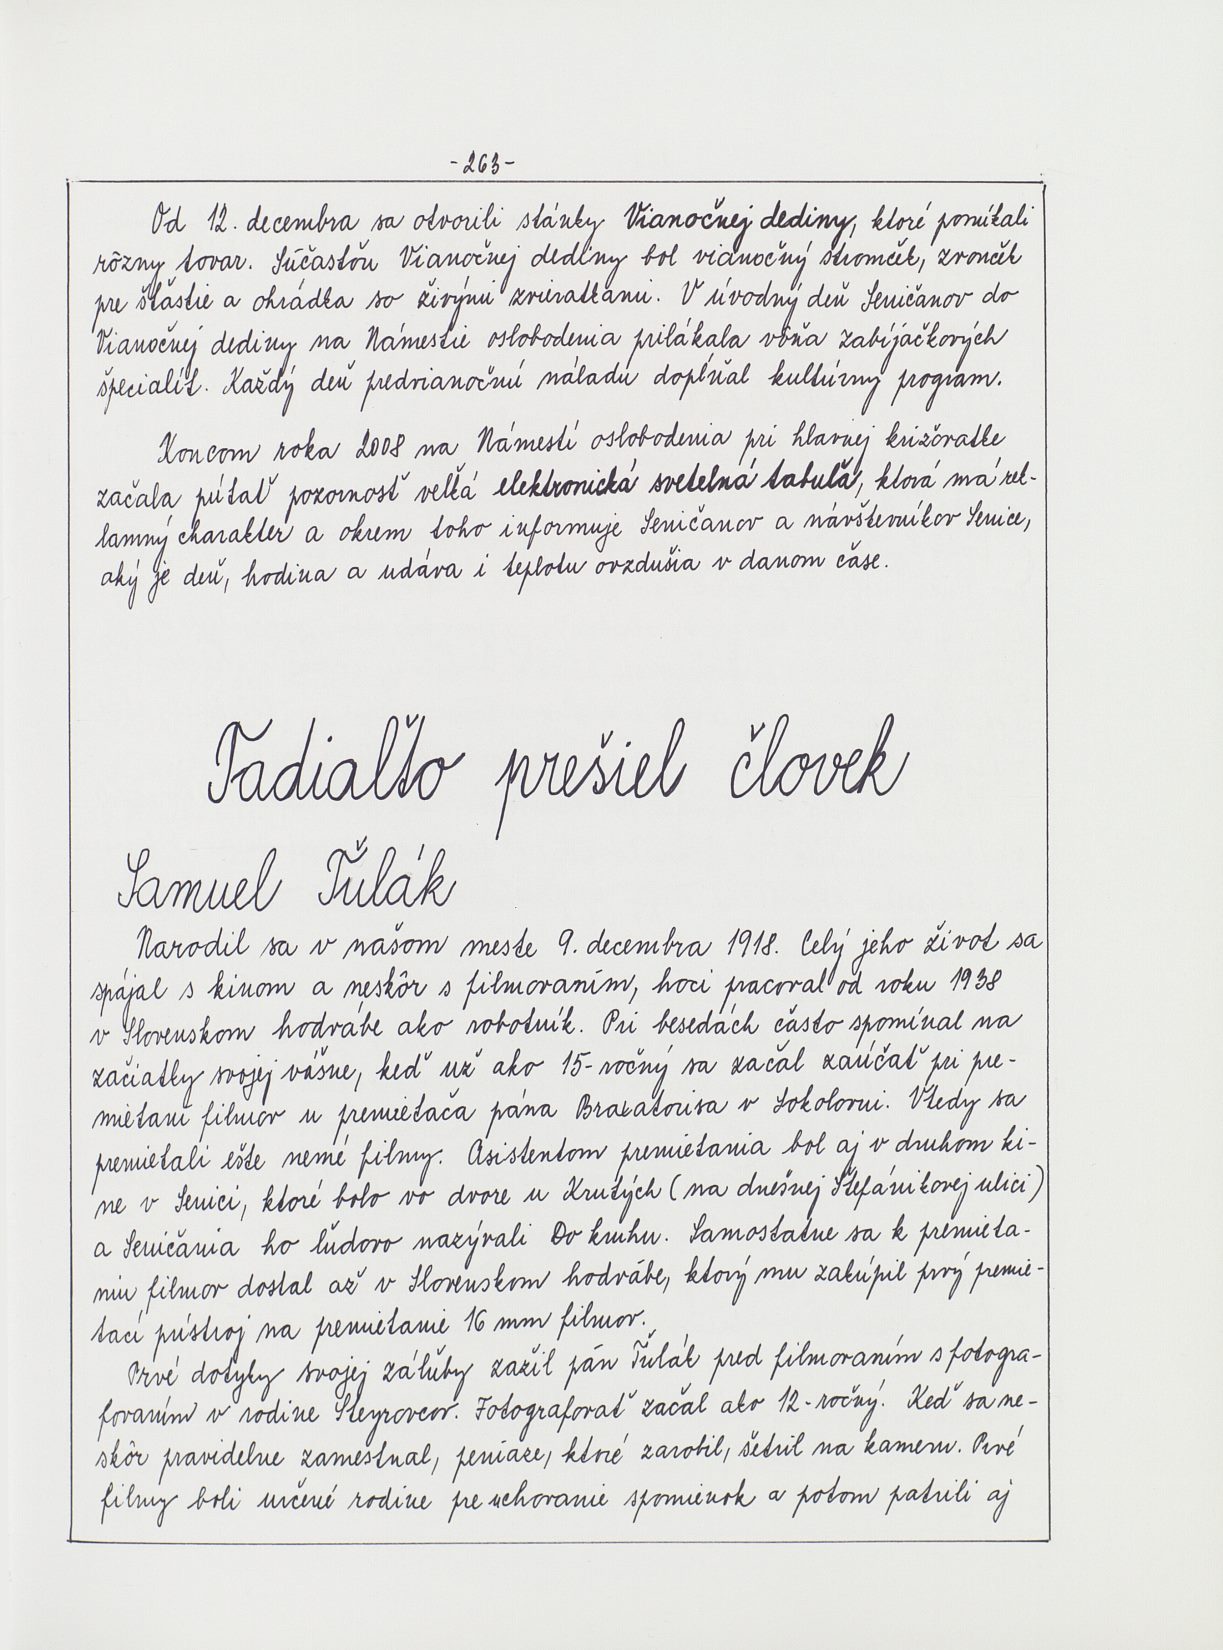 -263-
Od 12. decembra sa otvorili stánky Vianočnej dediny, ktoré ponúkali
rôzny tovar. Súčasťou Vianočnej dediny bol vianočný stromček, zvonček
pre šťastie a ohrádka so živými zvieratkami. V úvodný deň Seničanov do
Vianočnej dediny na Námestie oslobodenia prilákala vôňa zabíjačkových
špecialít. Každý deň predvianočnú náladu dopĺňal kultúrny program.
Koncom roka 2008 na Námestí oslobodenia pri hlavnej križovatke
začala pútať pozornosť veľká elektronická svetelná tabuľa, ktorá má rek-
lamný charakter a okrem toho informuje Seničanov a návštevníkov Senice,
aký je deň, hodina a udáva i teplotu ovzdušia v danom čase.
Tadiaľto prešiel človek
Samuel Ťulák
Narodil sa v našom meste 9. decembra 1918. Celý jeho život sa
spájal s kinom a neskôr s filmovaním, hoci pracoval od roku 1938
v Slovenskom hodvábe ako robotník. Pri besedách často spomínal na
začiatky svojej vášne, keď už ako 15-ročný sa začal zaúčať pri pre-
mietaní filmov u premietača pána Brazatorisa v Sokolovni. Vtedy sa
premietali ešte nemé filmy. Asistentom premietania bol aj v druhom ki-
ne v Senici, ktoré bolo vo dvore u Krutých (na dnešnej Štefánikovej ulici)
a Seničania ho ľudovo nazývali Do kruhu. Samostatne sa k premieta-
niu filmov dostal až v Slovenskom hodvábe, ktorý mu zakúpil prvý premie-
tací prístroj na premietanie 16 mm filmov.
Prvé dotyky svojej záľuby zažil pán Ťulák pred filmovaním s fotogra-
fovaním v rodine Steyrovcov. Fotografovať začal ako 12-ročný. Keď sa ne-
skôr pravidelne zamestnal, peniaze, ktoré zarobil, šetril na kameru. Prvé
filmy boli určené rodine pre uchovanie spomienok a potom patrili aj